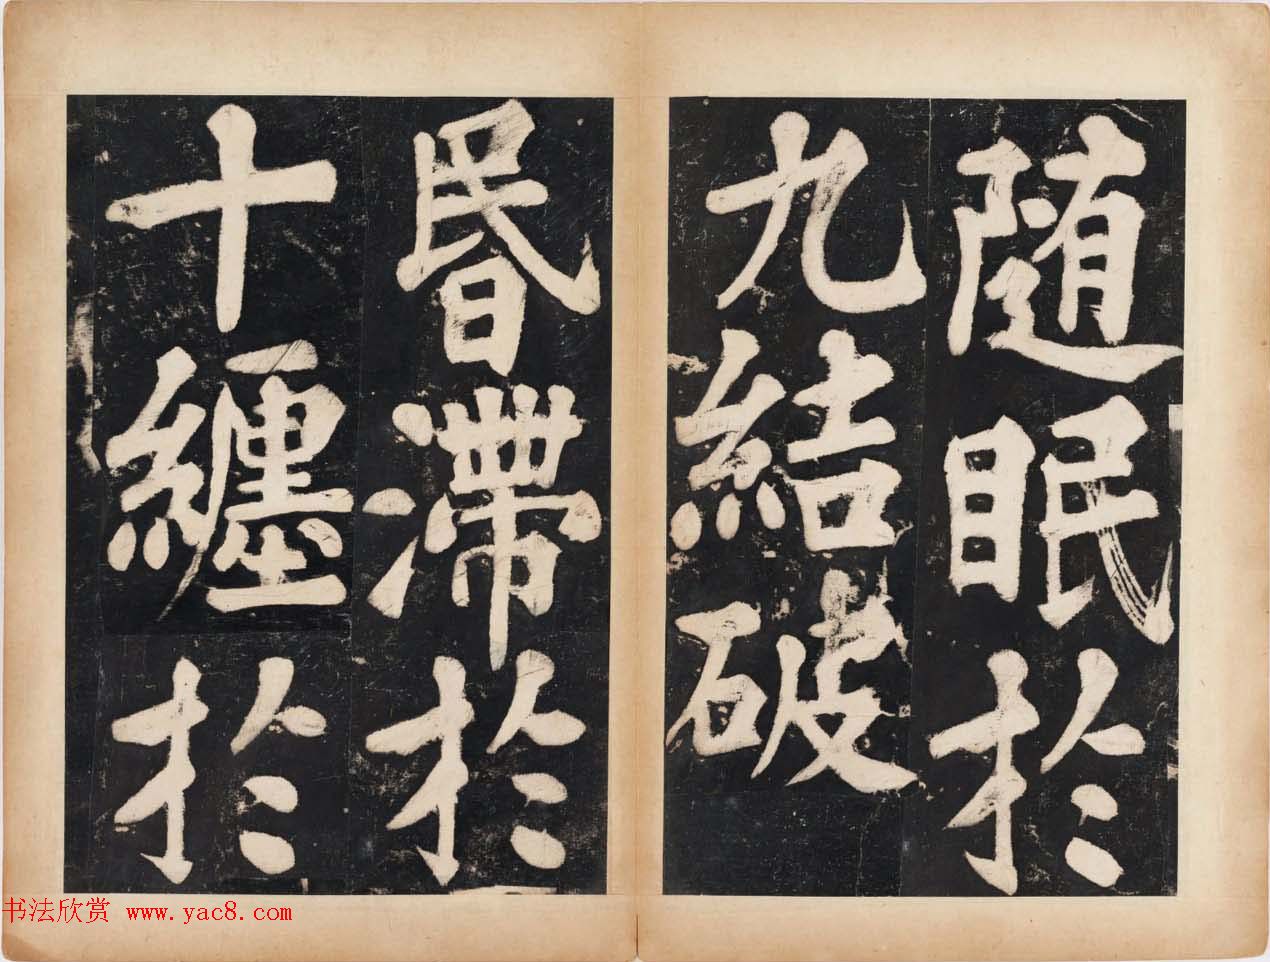 随眠於
九結破
昬滯於
十纏於
书法欣赏 www.yac8.com